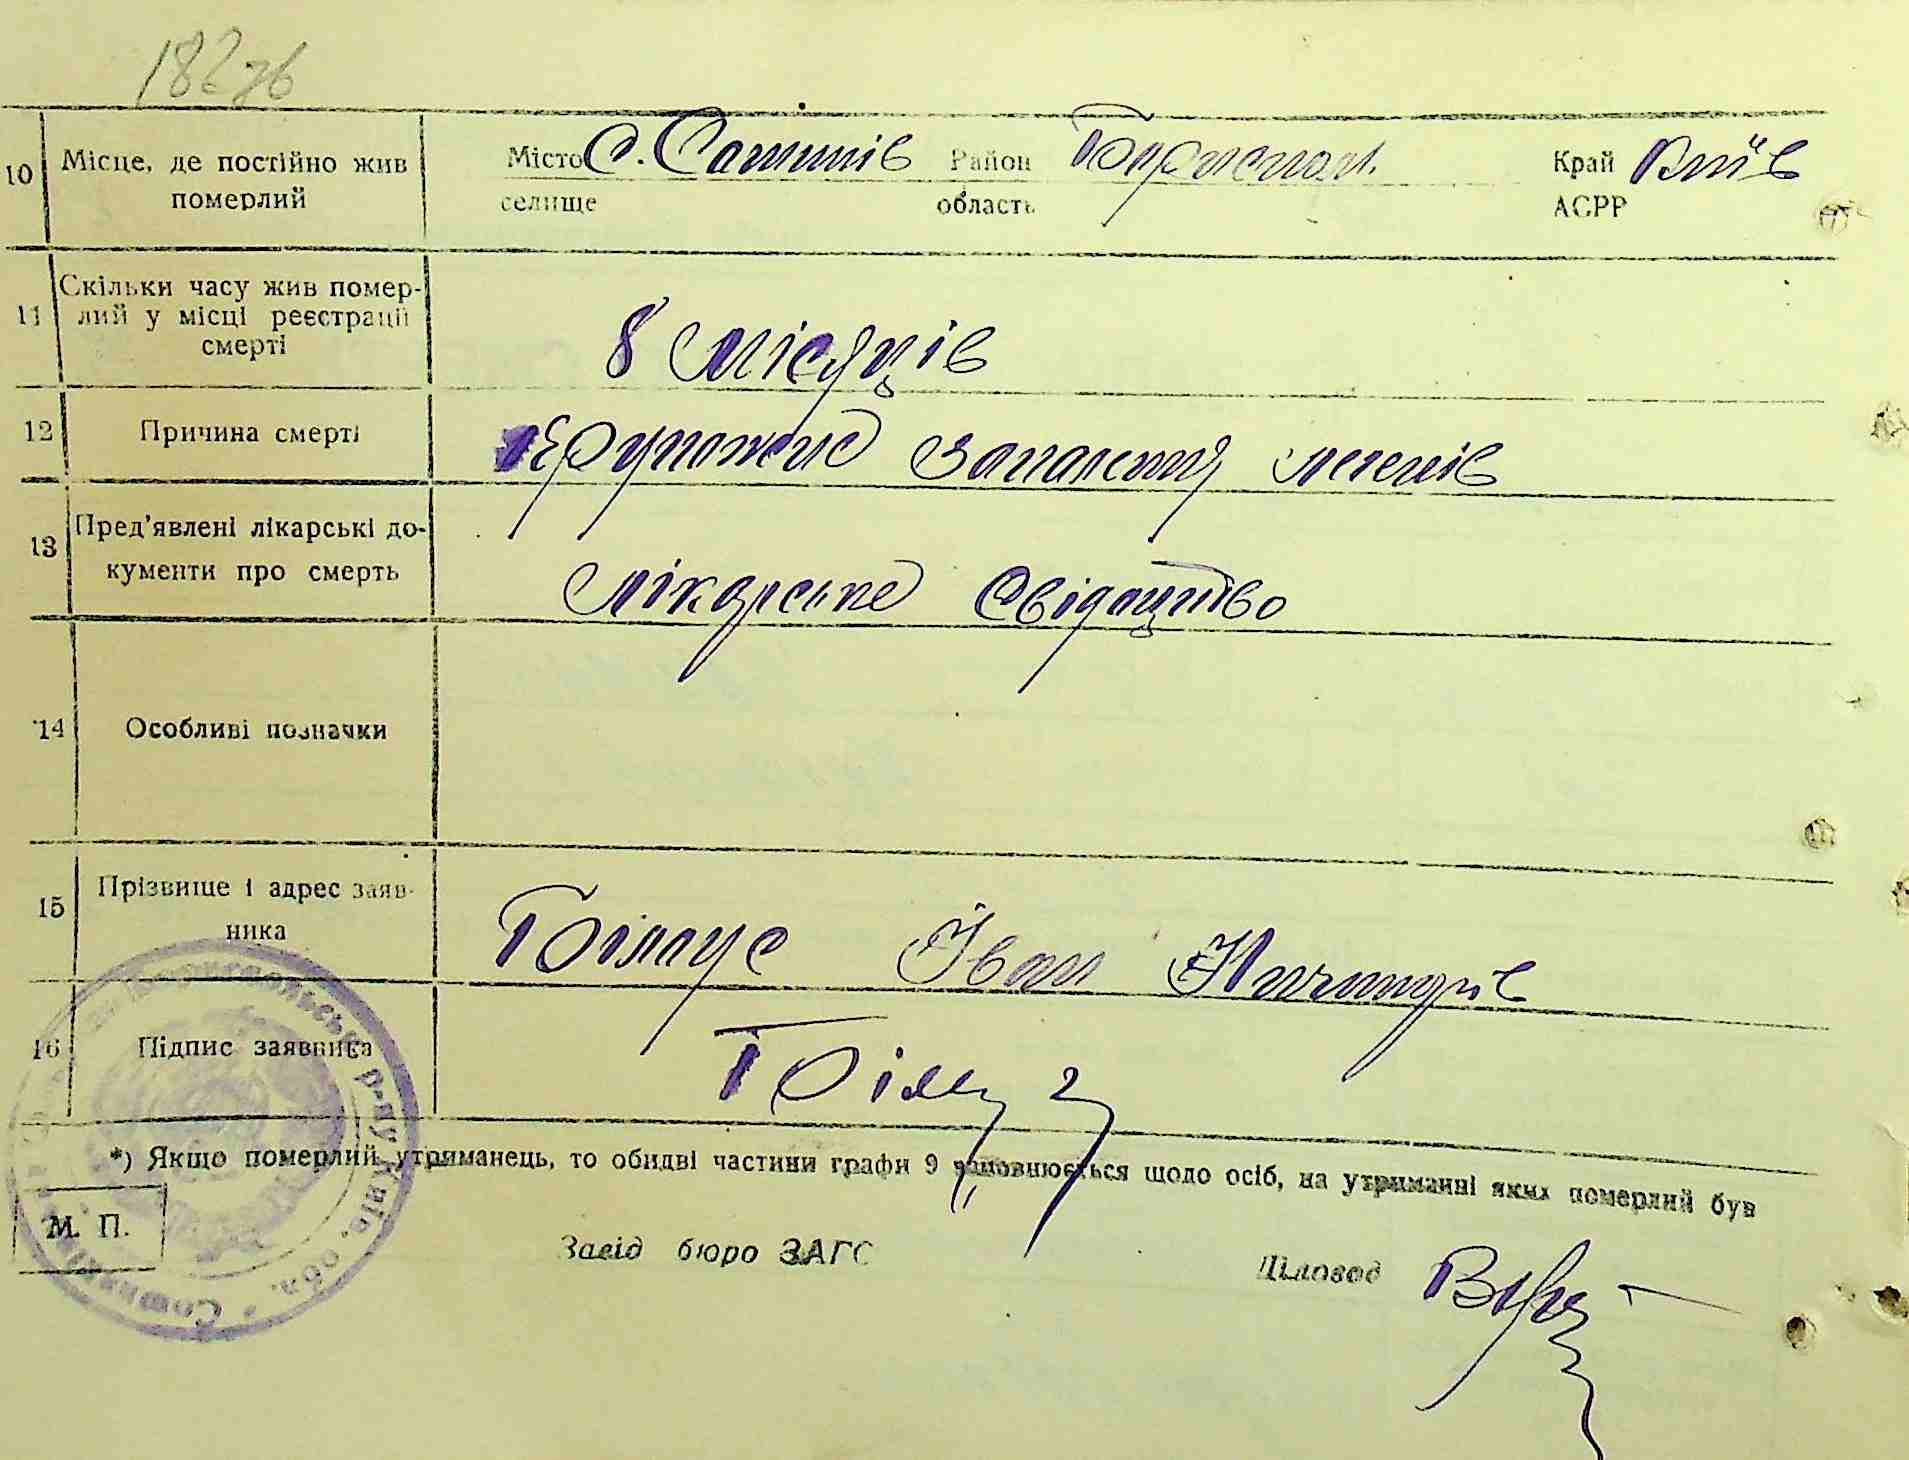 182 зв
10 Місце, де постійно жив померлий
Місто селище
Район область Бориспол.
Край АСРР Київ
11 Скільки часу жив помер-
лий у місці реєстрації
смерті
8 місяців
12 Причина смерті
Крупожне запалення легенів
13 Пред'явлені лікарські до-
кументи про смерть
лікарське свідацтво
14 Особливі позначки
15 Прізвище і адрес заяв-
ника
Білоус Іван
16 Підпис заявника
*) Якщо померлий утриманець, то обидві частини графи 9 заповнюється щодо осіб, на утриманні яких померлий був
М. П.
Завід бюро ЗАГС
Діловод